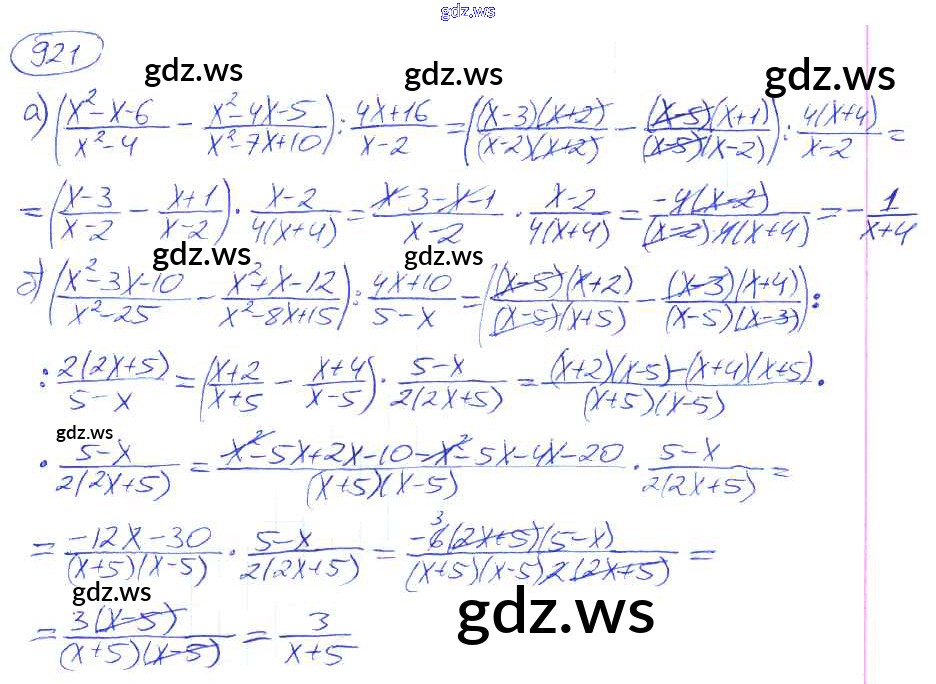 gdz.ws
921
gdz.ws gdz.ws gdz.ws
а) ((x²-x-6)/(x²-4) - (x²-4x-5)/(x²-7x+10)) : (4x+16)/(x-2) = ((x-3)(x+2)/(x-2)(x+2) - (x-5)(x+1)/(x-5)(x-2)) : 4(x+4)/(x-2) =
= ((x-3)/(x-2) - (x+1)/(x-2)) · (x-2)/4(x+4) = (x-3-x-1)/(x-2) · (x-2)/4(x+4) = -4(x-2)/(x-2)·4(x+4) = -1/(x+4)
gdz.ws gdz.ws
б) ((x²-3x-10)/(x²-25) - (x²+x-12)/(x²-8x+15)) : (4x+10)/(5-x) = ((x-5)(x+2)/(x-5)(x+5) - (x-3)(x+4)/(x-5)(x-3)) :
: 2(2x+5)/(5-x) = ((x+2)/(x+5) - (x+4)/(x-5)) · (5-x)/2(2x+5) = ((x+2)(x-5)-(x+4)(x+5))/(x+5)(x-5) ·
gdz.ws
· (5-x)/2(2x+5) = (x²-5x+2x-10-x²-5x-4x-20)/(x+5)(x-5) · (5-x)/2(2x+5) =
= (-12x-30)/(x+5)(x-5) · (5-x)/2(2x+5) = -6³(2x+5)(5-x)/(x+5)(x-5)2(2x+5) =
gdz.ws gdz.ws
= 3(x-5)/(x+5)(x-5) = 3/(x+5)